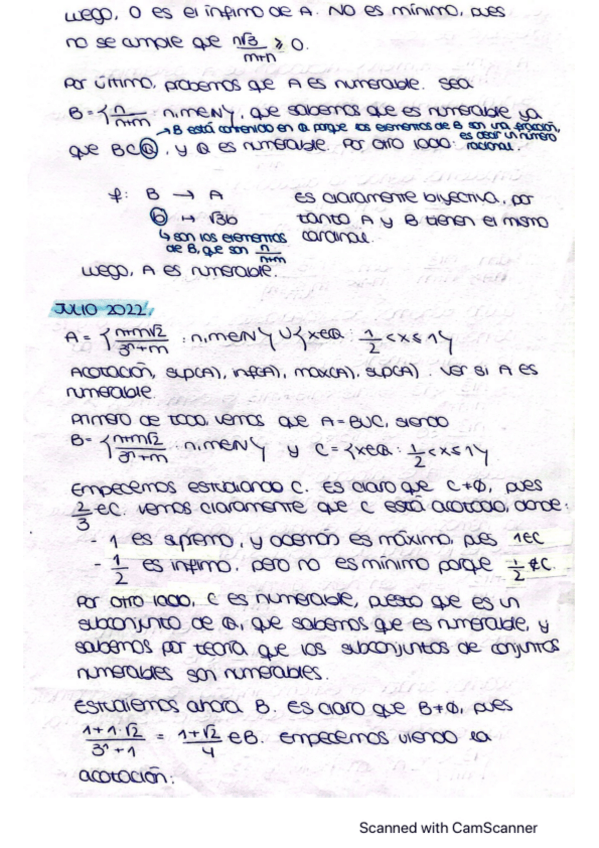 luego, 0 es el ínfimo de A. No es mínimo, pues
no se cumple que n√3/m+n ≥ 0.
Por último, probemos que A es numerable. Sea
B = {n/n+m : n,m∈N}, que sabemos que es numerable ya
→ B está contenido en Q porque los elementos de B son una fracción,
es decir un número
que B⊂Q, y Q es numerable. Por otro lado: racional.
f: B → A es claramente biyectiva, por
b ↦ √3b tanto A y B tienen el mismo
↳ son los elementos cardinal.
de B, que son n/n+m
luego, A es numerable.
JULIO 2022.
A = {n+m√2/3ⁿ+m : n,m∈N} ∪ {x∈Q : 1/2 < x ≤ 1}
Acotación, sup(A), inf(A), max(A), sup(A). Ver si A es
numerable.
Primero de todo, vemos que A = B∪C, siendo
B = {n+m√2/3ⁿ+m : n,m∈N} y C = {x∈Q : 1/2 < x ≤ 1}
Empecemos estudiando C. Es claro que C ≠ ∅, pues
2/3 ∈ C. Vemos claramente que C está acotado, donde:
- 1 es supremo, y además es máximo, pues 1∈C
- 1/2 es ínfimo, pero no es mínimo porque 1/2 ∉ C.
Por otro lado, C es numerable, puesto que es un
subconjunto de Q, que sabemos que es numerable, y
sabemos por teoría que los subconjuntos de conjuntos
numerables son numerables.
Estudiemos ahora B. Es claro que B ≠ ∅, pues
1+1·√2/3¹+1 = 1+√2/4 ∈ B. Empecemos viendo la
acotación:
Scanned with CamScanner